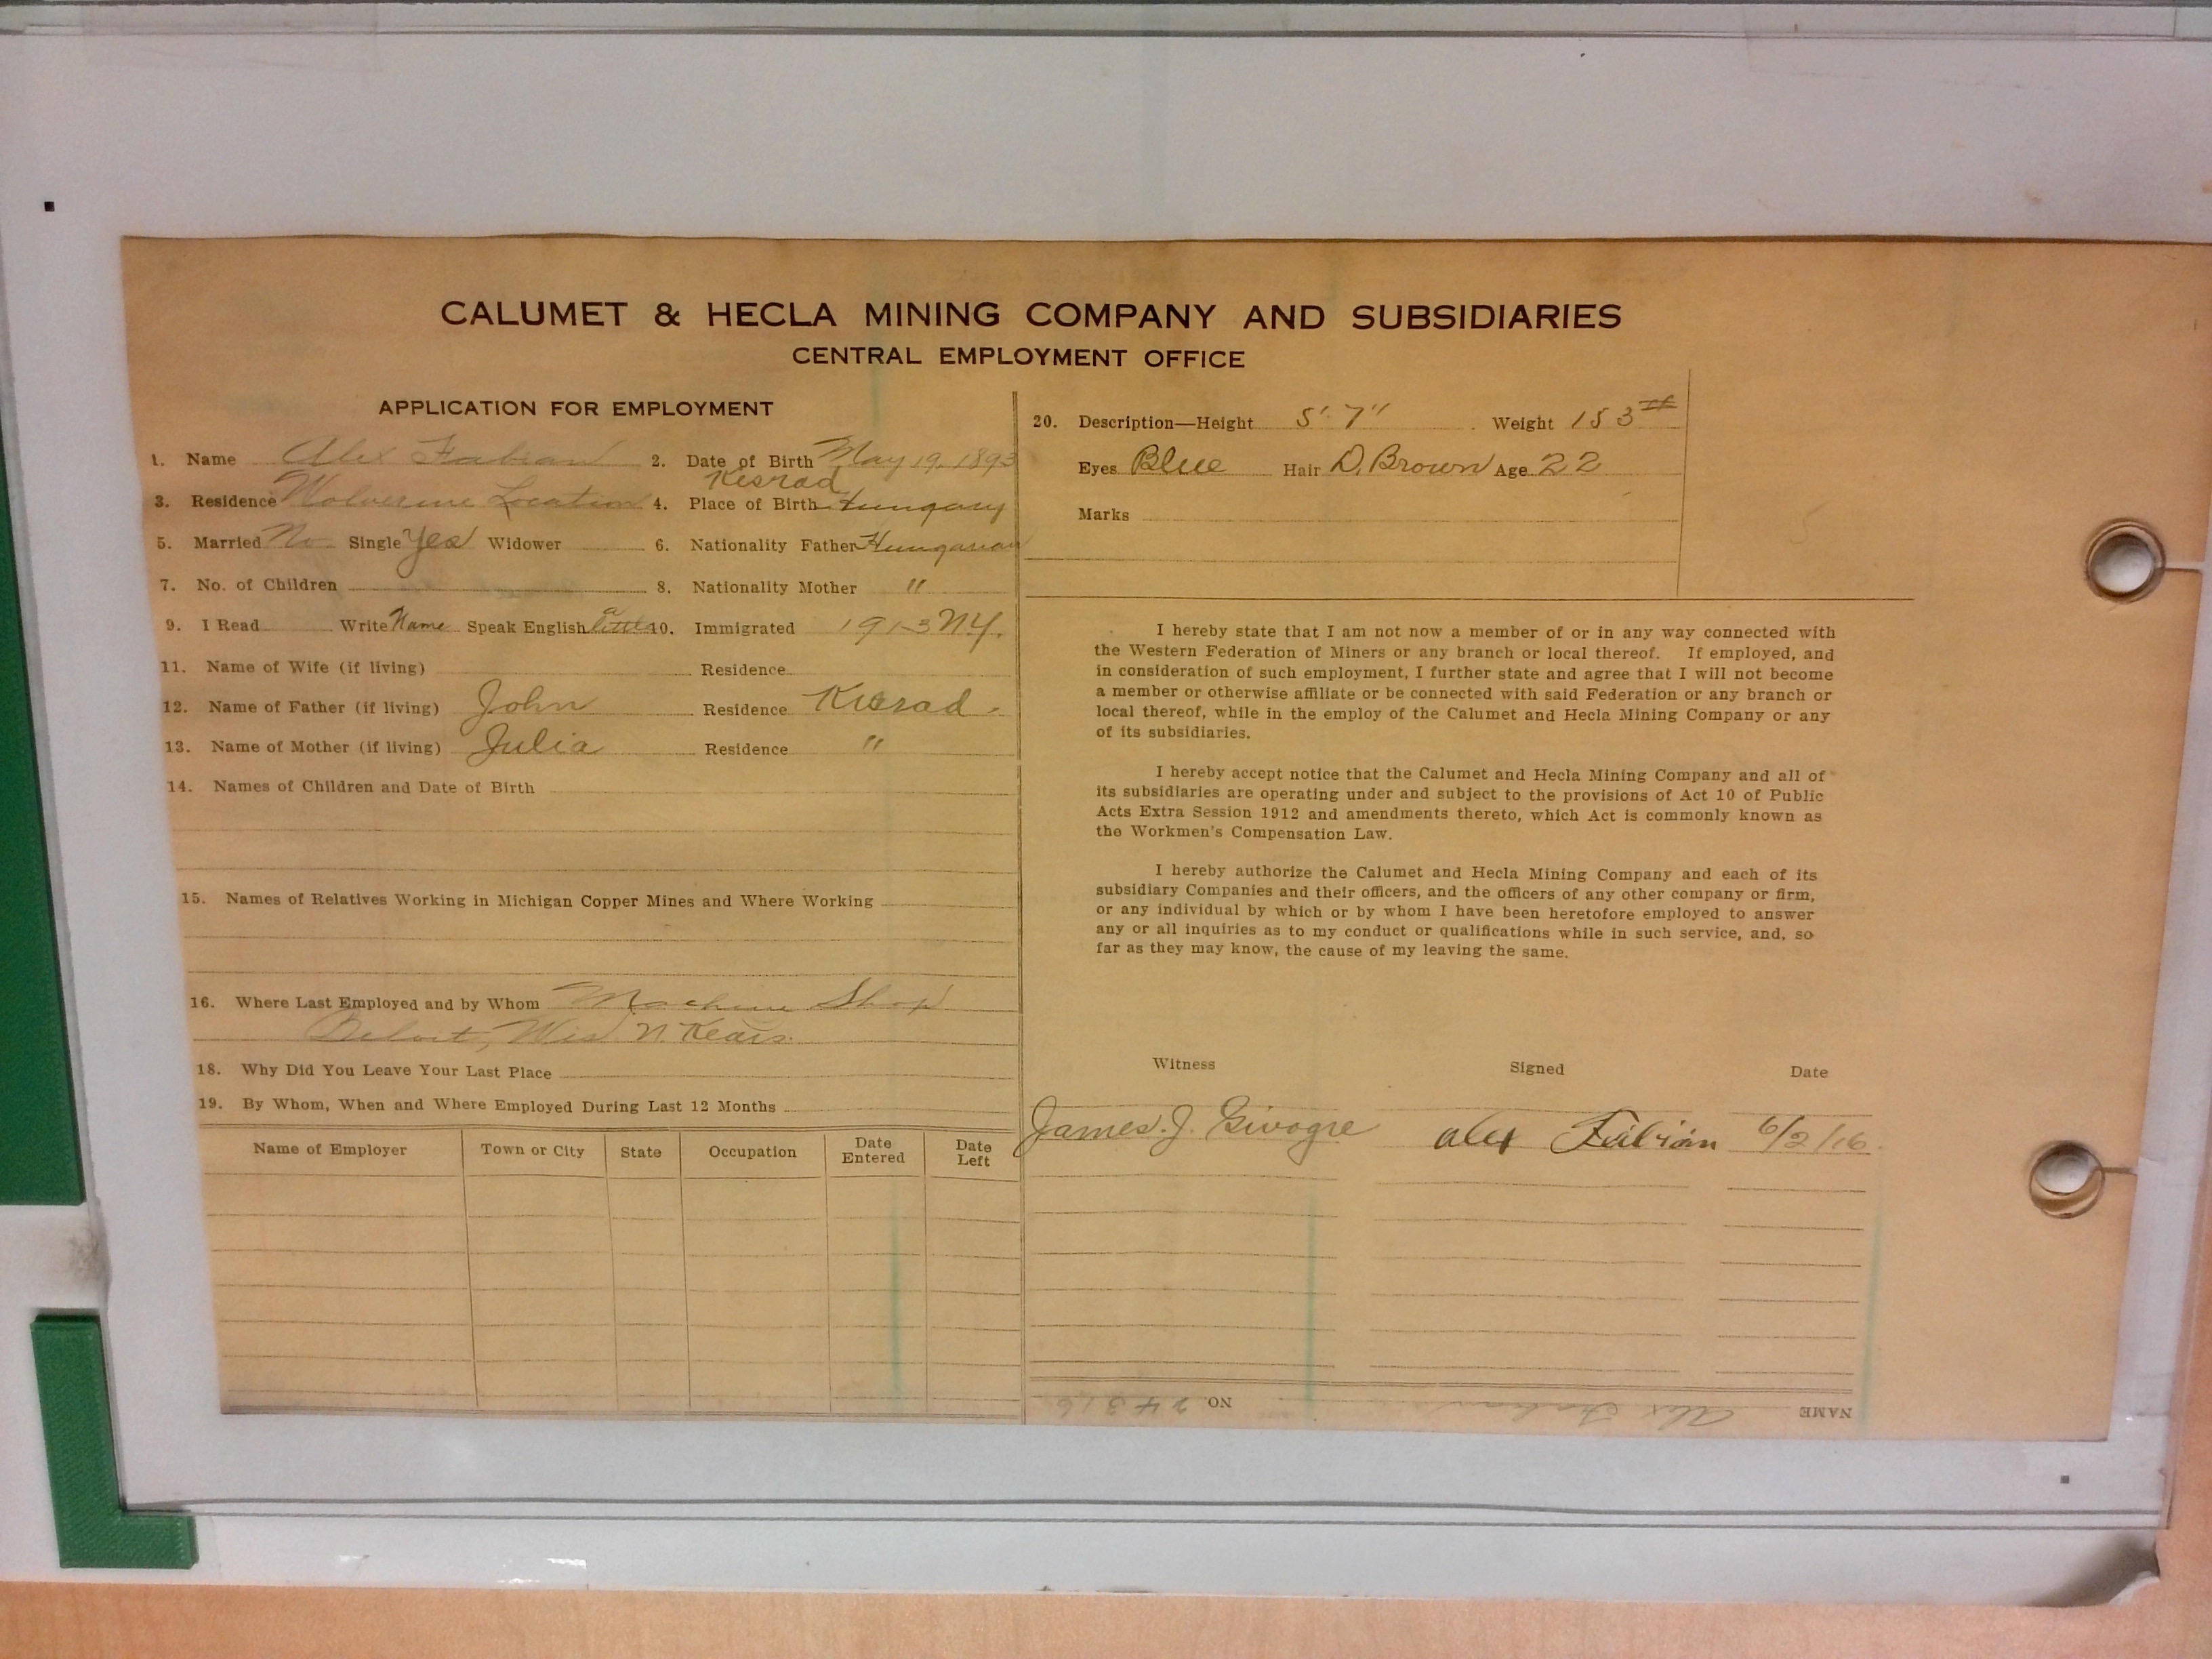 CALUMET & HECLA MINING COMPANY AND SUBSIDIARIES
CENTRAL EMPLOYMENT OFFICE
APPLICATION FOR EMPLOYMENT
1. Name Alex Fabian 2. Date of Birth May 19, 1893
Kisrad
3. Residence Wolverine Location 4. Place of Birth Hungary
5. Married No Single Yes Widower 6. Nationality Father Hungarian
7. No. of Children 8. Nationality Mother "
9. I Read Write Name Speak English a little 10. Immigrated 1913 N.Y.
11. Name of Wife (if living) Residence
12. Name of Father (if living) John Residence Kisrad
13. Name of Mother (if living) Julia Residence "
14. Names of Children and Date of Birth
15. Names of Relatives Working in Michigan Copper Mines and Where Working
16. Where Last Employed and by Whom Machine Shop
Beloit, Wis. N. Kears.
18. Why Did You Leave Your Last Place
19. By Whom, When and Where Employed During Last 12 Months
Name of Employer Town or City State Occupation Date Entered Date Left
20. Description—Height 5' 7" Weight 153 #
Eyes Blue Hair D. Brown Age 22
Marks
I hereby state that I am not now a member of or in any way connected with
the Western Federation of Miners or any branch or local thereof. If employed, and
in consideration of such employment, I further state and agree that I will not become
a member or otherwise affiliate or be connected with said Federation or any branch or
local thereof, while in the employ of the Calumet and Hecla Mining Company or any
of its subsidiaries.
I hereby accept notice that the Calumet and Hecla Mining Company and all of
its subsidiaries are operating under and subject to the provisions of Act 10 of Public
Acts Extra Session 1912 and amendments thereto, which Act is commonly known as
the Workmen's Compensation Law.
I hereby authorize the Calumet and Hecla Mining Company and each of its
subsidiary Companies and their officers, and the officers of any other company or firm,
or any individual by which or by whom I have been heretofore employed to answer
any or all inquiries as to my conduct or qualifications while in such service, and, so
far as they may know, the cause of my leaving the same.
Witness Signed Date
James. J. Givogre alex Fábián 6/2/16
NAME Alex Fabian NO. 24316